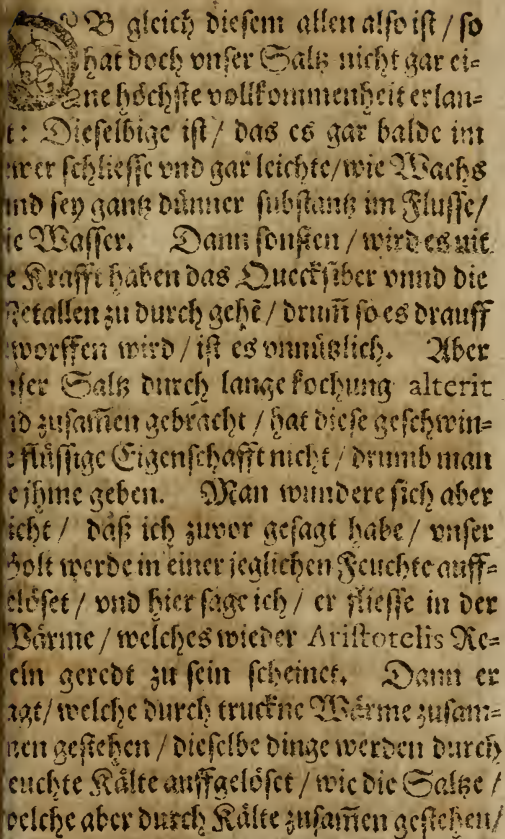 OB gleich diesem allen also ist / so
hat doch vnser Saltz nicht gar ei-
ne höchste vollkommenheit erlan-
t: Dieselbige ist / das es gar balde im
wer schliesse vnd gar leichte / wie Wachs
nnd sey gantz dünner substantz im Flusse /
ie Wasser. Dann sonsten / wird es nit
e Krafft haben das Quecksilber vnnd die
Metallen zu durch gehē / drum̄ so es drauff
worffen wird / ist es vnnützlich. Aber
nser Saltz durch lange kochung alterit
nd zusam̄en gebracht / hat diese geschwin-
e flüssige Eigenschafft nicht / drumb man
e jhme geben. Man wundere sich aber
icht / daß ich zuvor gesagt habe / vnser
Golt werde in einer jeglichen Feuchte auff-
elöset / vnd hier sage ich / er fliesse in der
Wärme / welches wieder Aristotelis Re-
eln geredt zu sein scheinet. Dann er
agt / welche durch truckne Wärme zusam-
nen gestehen / dieselbe dinge werden durch
euchte Kälte auffgelöset / wie die Saltze /
velche aber durch Kälte zusam̄en gestehen /